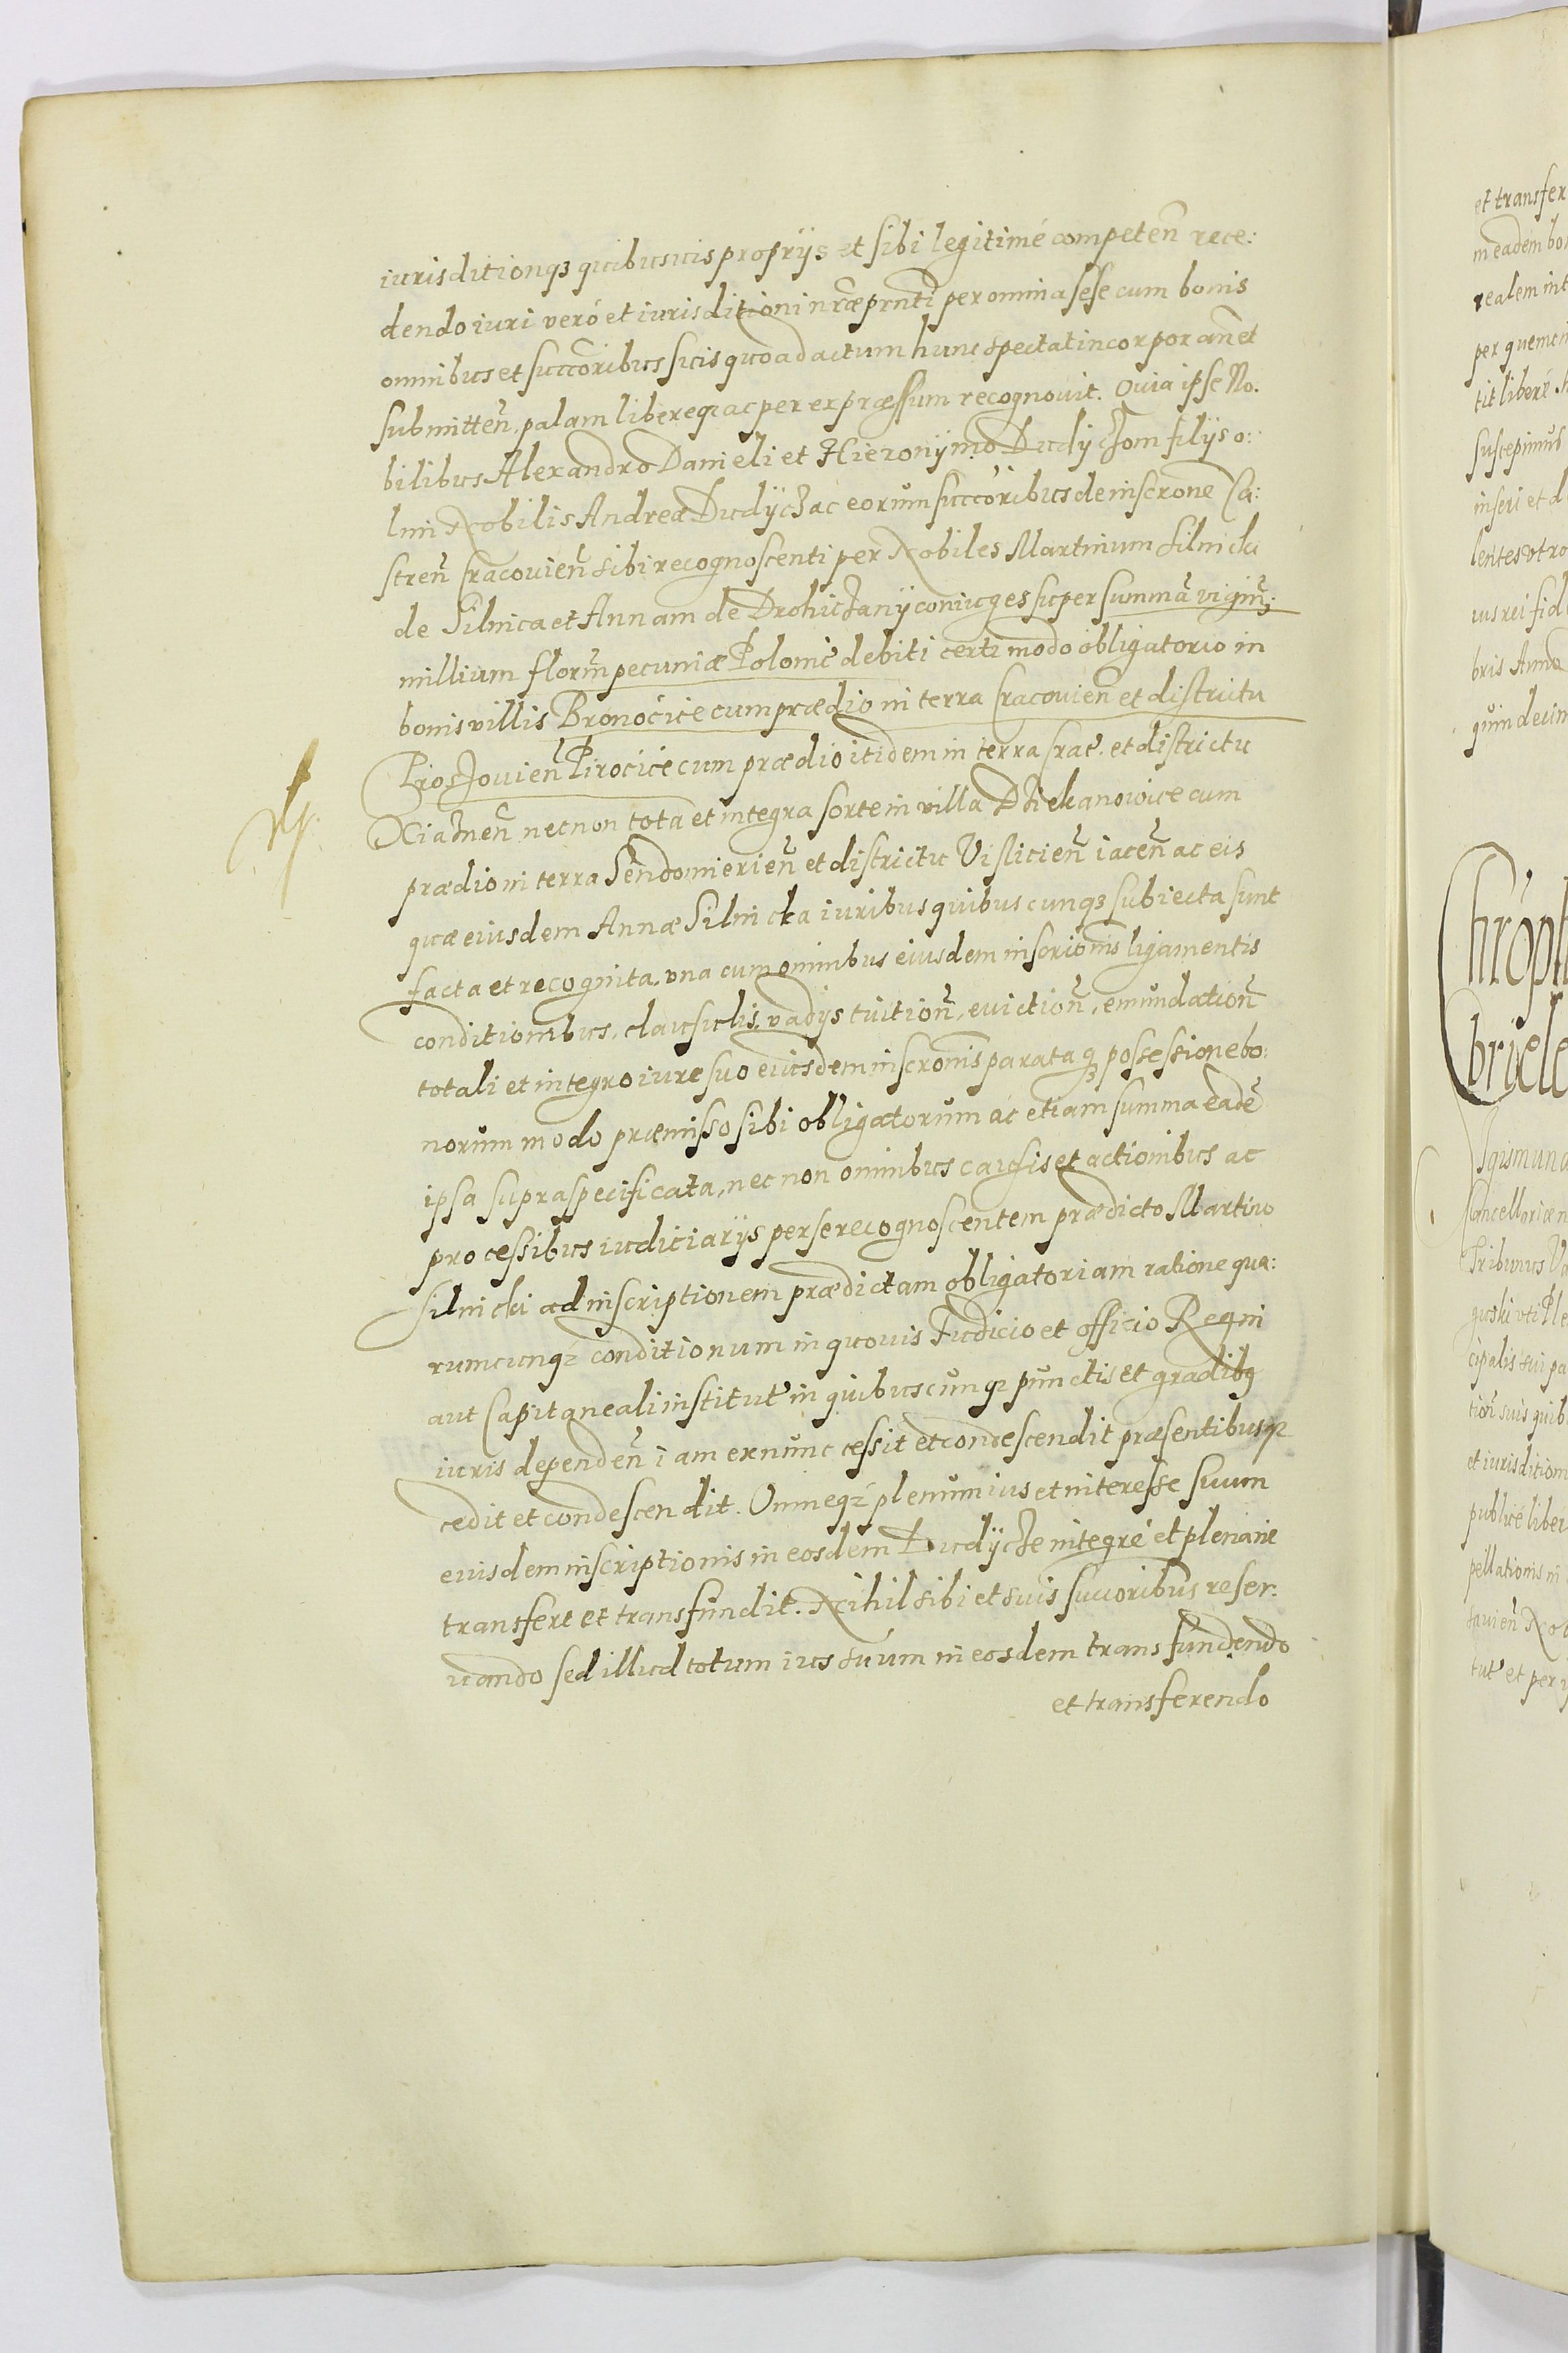 iurisditionqꝫ quibusuis proprijs et sibi legitimé competen̄ rece:
dendo iuri veró et iurisditioni nr̄æ prn̄ti per omnia sese cum bonis
omnibus et succoribus suis quoad actum hunc spectat incorporan̄ et
submitten̄, palam libereqꝫ ac per expræssum recognouit. Quia ipse No.
bilibus Alexandro Danieli et Hieronÿmo Dudÿczom filijs o:
lim Nobilis Andreæ Dudÿcz ac eorum succoribus de inscrone Ca:
stren̄ Cracouien̄ sibi recognoscenti per Nobiles Martinum Silnicki
de Silnica et Annam de Drohiczanÿ coniuges super summā vigin̄:
millium floren̄ pecuniæ Polonic̄ debiti certi modo obligatorio in
bonis villis Bronocice cum prædio in terra Cracouien̄ et districtu
Proszouien̄ Pirocice cum prædio itidem in terra Crac̄. et districtu
Xiaznen̄ nec non tota et integra sorte in villa Dziekanowice cum
prædio in terra Sendomierien̄ et districtu Vislicien̄ iacen̄ ac eis
quæ eiusdem Annæ Silnicka iuribus quibuscunqꝫ subiecta sunt
facta et recognita, vna cum omnibus eiusdem inscrionis ligamentis
conditionibus, clausulis, vadijs tuition̄, euiction̄, emundation̄
totali et integro iure suo eiusdem inscronis parataqꝫ possessione bo:
norum modo præmisso sibi obligatorum ac etiam summa eadē
ipsa supraspecificata, nec non omnibus causis et actionibus ac
processibus iudiciarijs per se recognoscentem prædicto Martino
Silnicki ad inscriptionem prædictam obligatoriam ratione qua:
rumcunqꝫ conditionum in quouis Iudicio et officio Regni
aut Capitaneali institut̄ in quibuscunqꝫ punctis et gradibꝫ
iuris dependen̄ iam ex nunc cessit et condescendit præsentibusqꝫ
cedit et condescendit. Omneqꝫ plenum ius et interesse suum
euisdem inscriptionis in eosdem Dudÿcze integré et plenarie
transfert et transfundit. Nihil sibi et suis succoribus reser:
uando sed illud totum ius suum in eosdem transfundendo
et transferendo
et transfer
in eadem bon
realem int
per quem
tit liberé
suscepimus
inseri et d
uus rei fid
bris Anno
quindecim
Chroph
briele
Sigismund
Cancellariæ
Tribunus
cipalis sui pa
tion̄ suis quib
et iurisdition
publicé liber
pellationis in
tut̄ et per